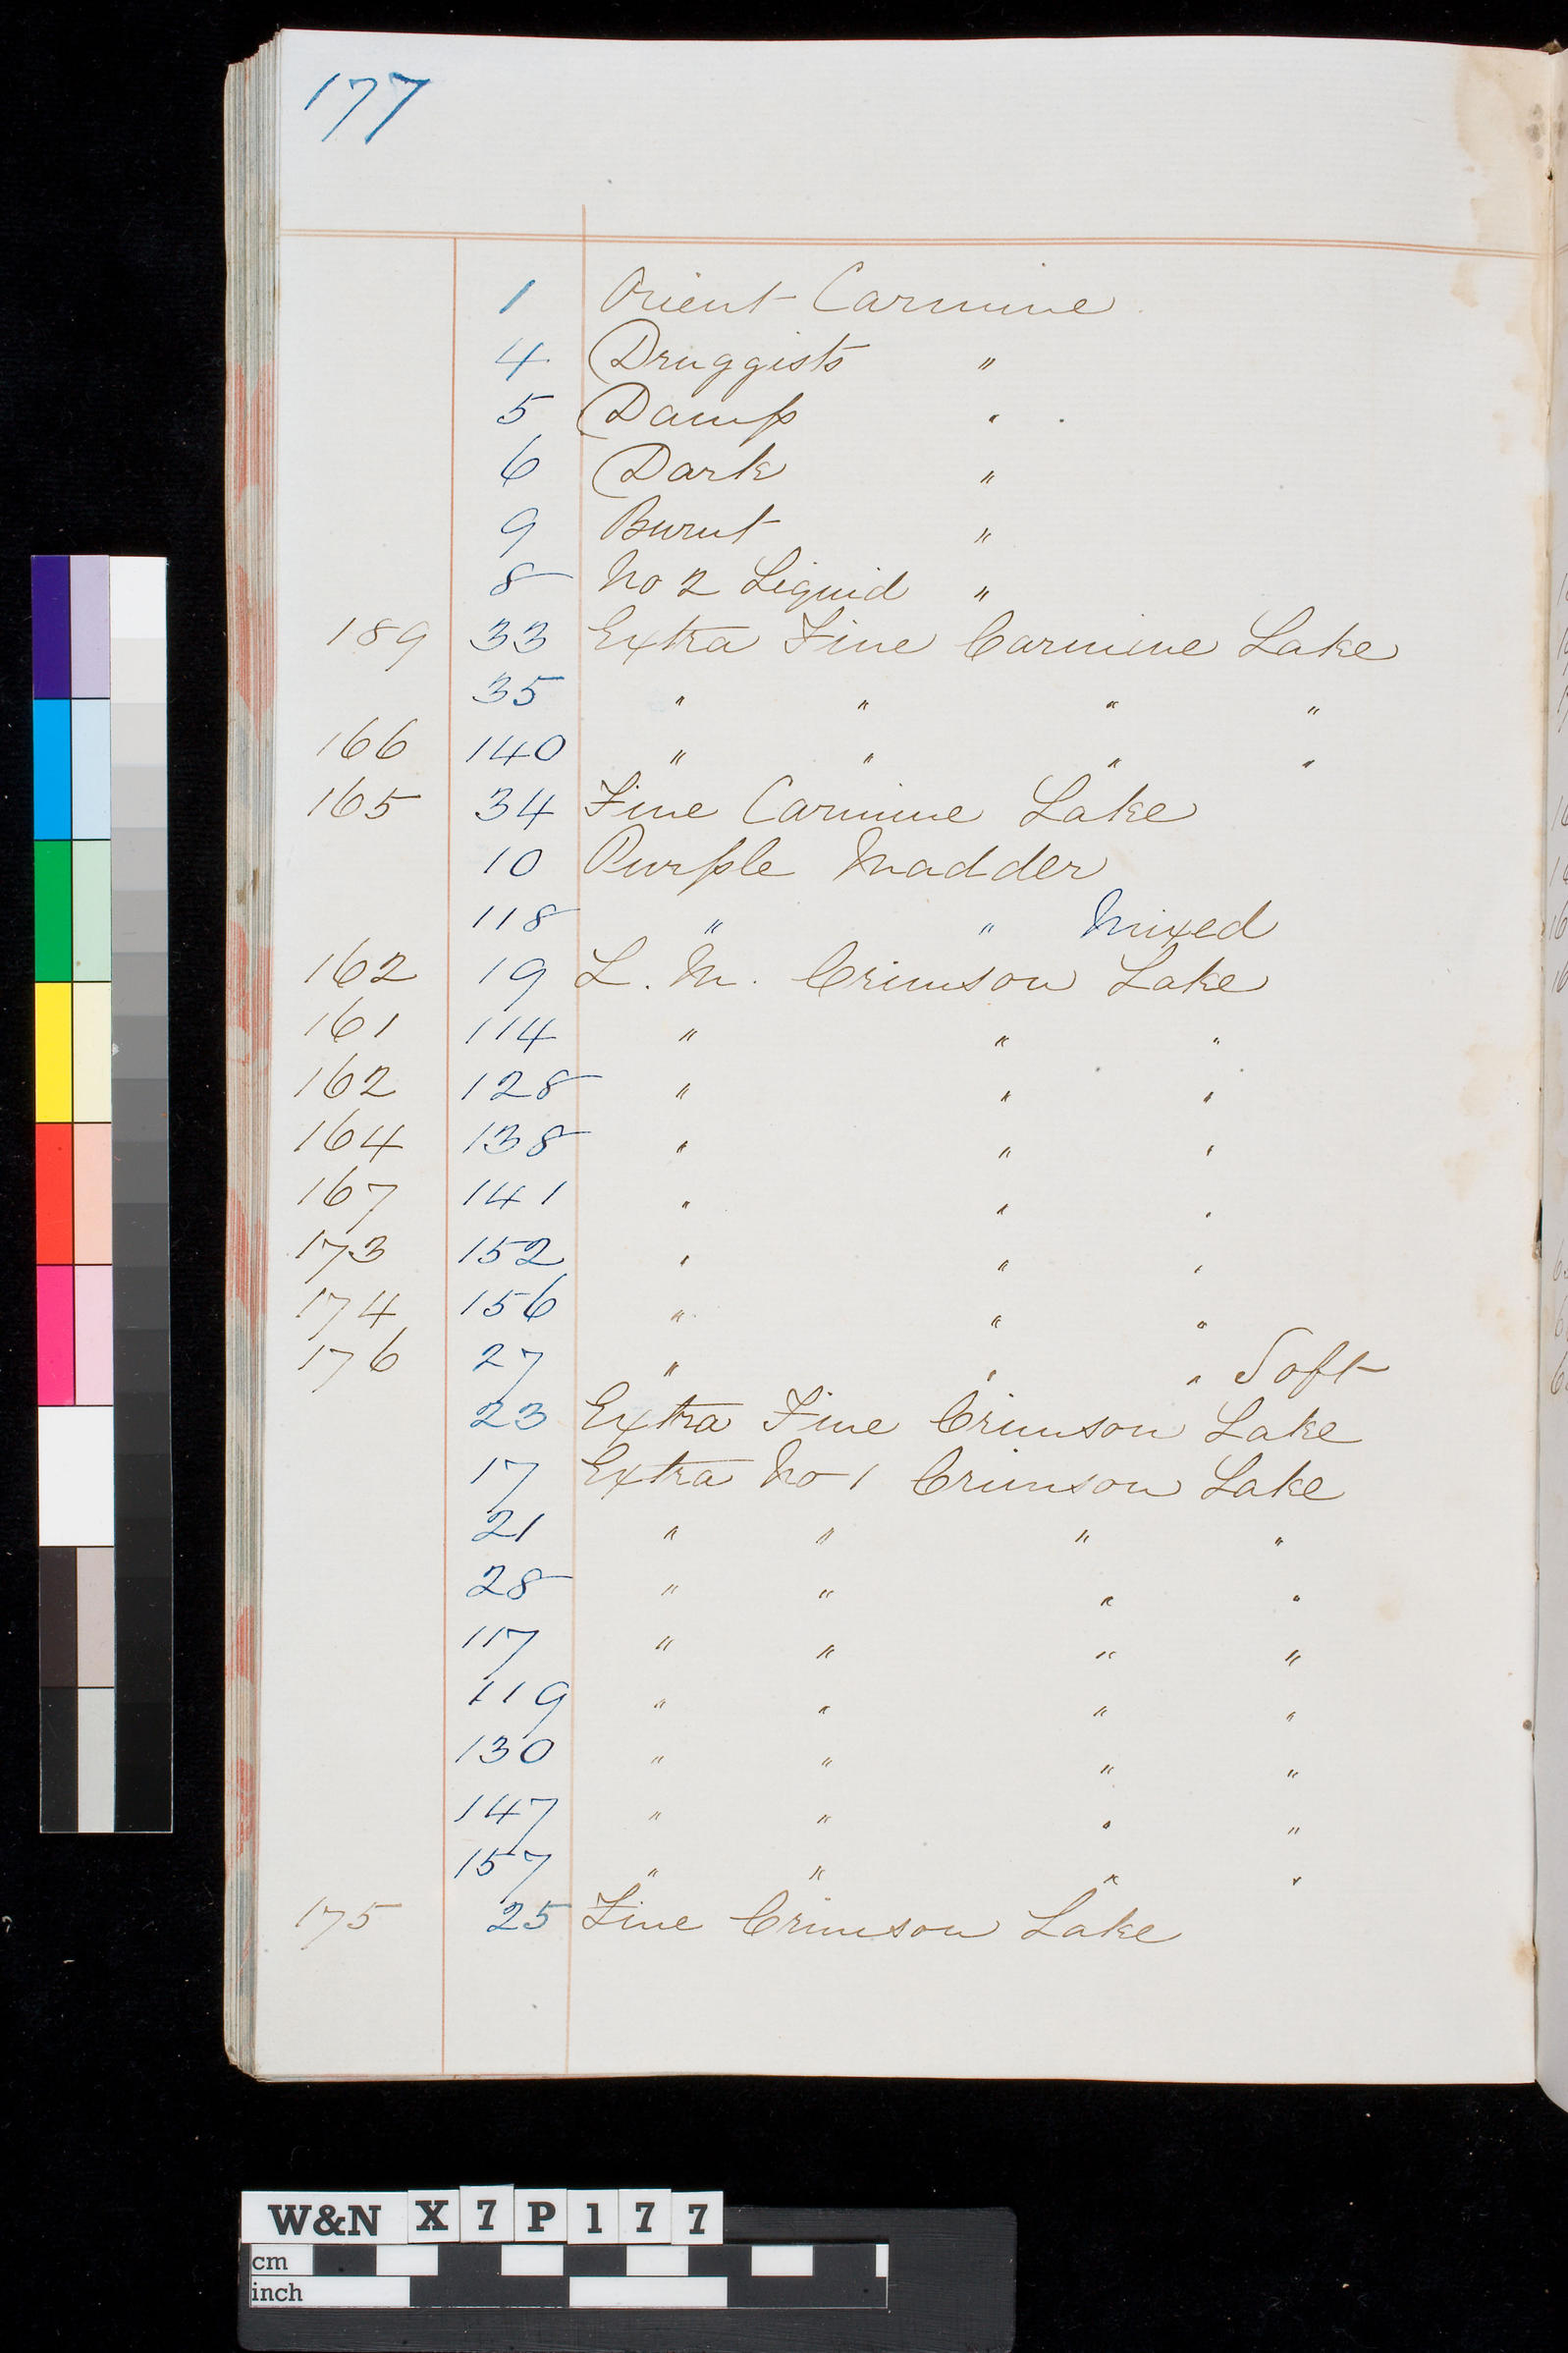 177
1 Orient Carmine
4 Druggists "
5 Damp "
6 Dark "
9 Burnt "
8 No 2 Liquid "
189 33 Extra Fine Carmine Lake
35 " " " "
166 140 " " " "
165 34 Fine Carmine Lake
10 Purple Madder
118 " " Mixed
162 19 L. M. Crimson Lake
161 114 " " "
162 128 " " "
164 138 " " "
167 141 " " "
173 152 " " "
174 156 " " "
176 27 " " " Soft
23 Extra Fine Crimson Lake
17 Extra No 1 Crimson Lake
21 " " " "
28 " " " "
117 " " " "
119 " " " "
130 " " " "
147 " " " "
157 " " " "
175 25 Fine Crimson Lake
W&N X 7 P 1 7 7
cm
inch